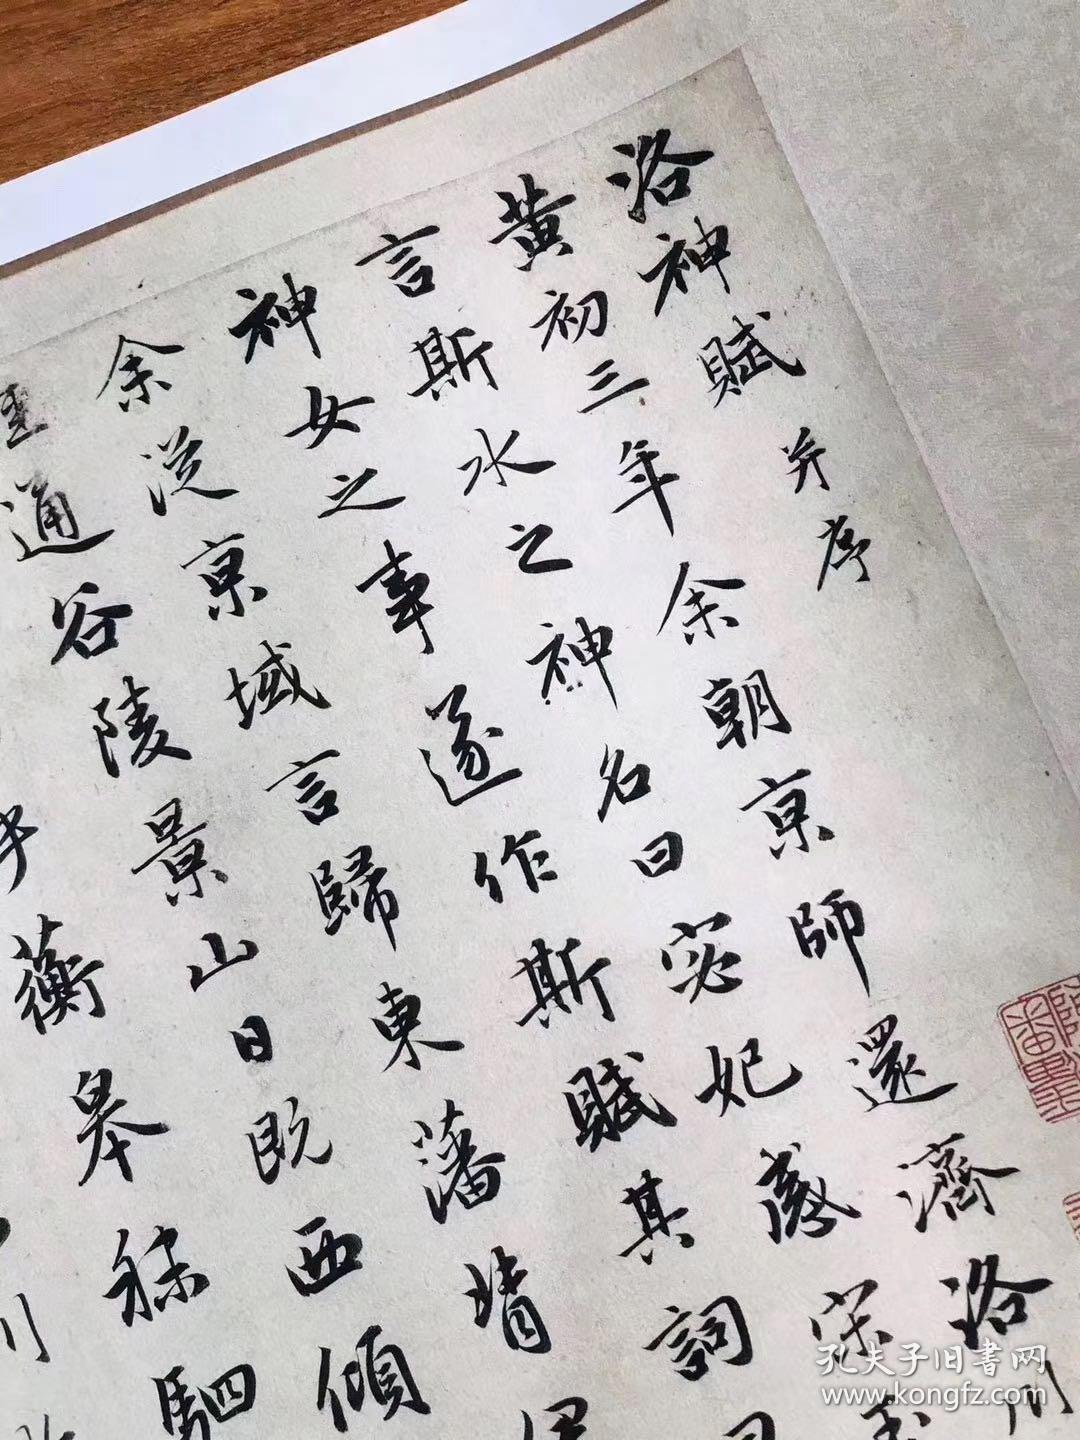 洛神賦并序
黄初三年余朝京師還濟洛川
言斯水之神名曰宓妃感宋玉
神女之事遂作斯賦其詞曰
余從京域言歸東藩背伊
通谷陵景山日既西傾
蘅皋秣駟
孔夫子旧書网
www.kongfz.com